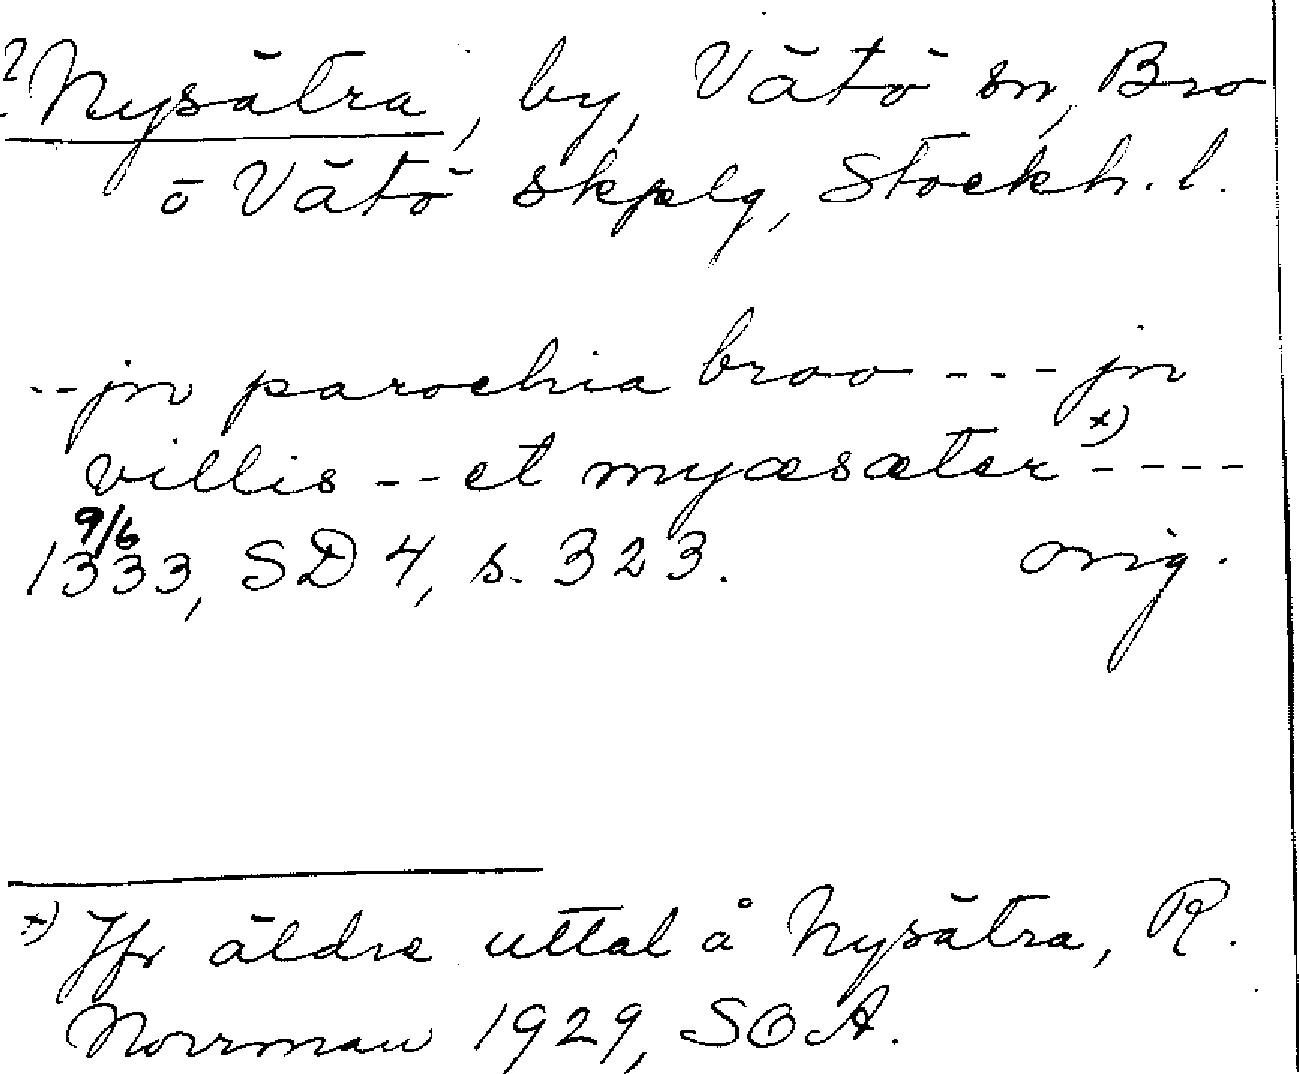 ? Nysätra, by, Vätö sn, Bro
o Vätö skplg, Stockh. l.
--jn parochia broo --- jn
villis -- et myæsæter x) ----
9/6
1333, SD 4, s. 323. orig.
x) Jfr äldre uttal å Nysätra, R.
Norrman 1929, SOA.